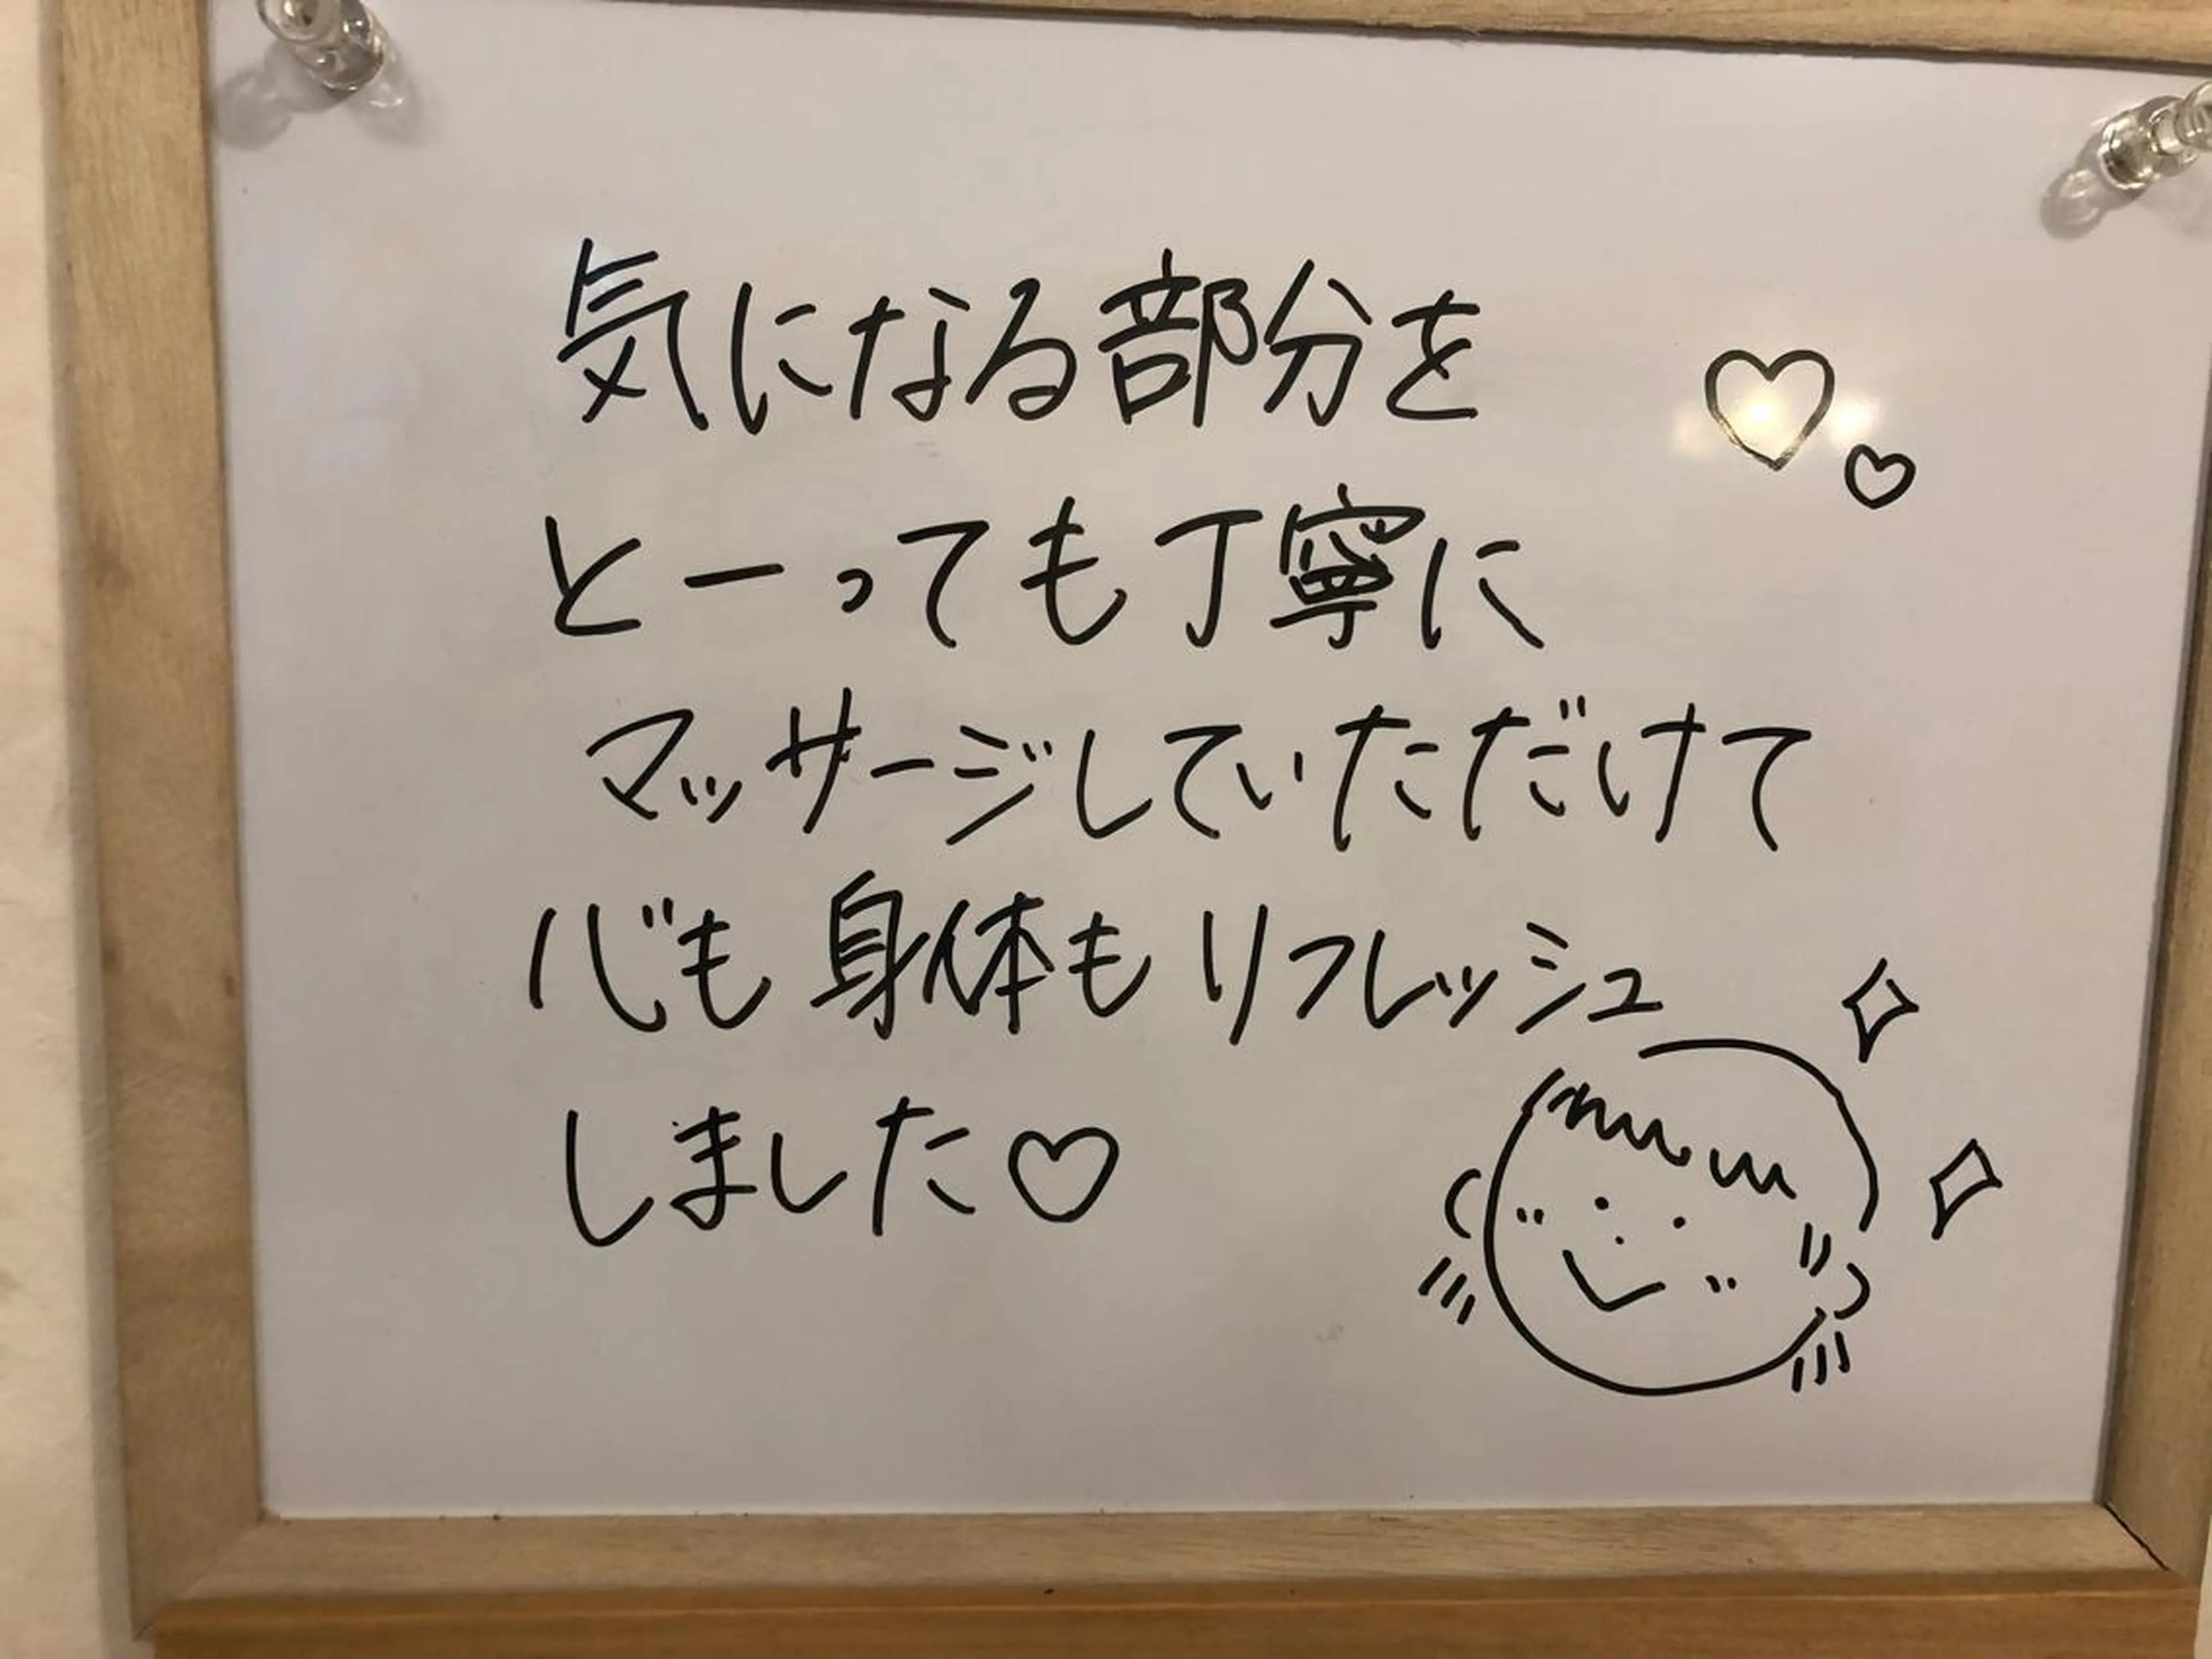 気になる部分を
とーっても丁寧に
マッサージしていただけて
心も身体もリフレッシュ
しました♡